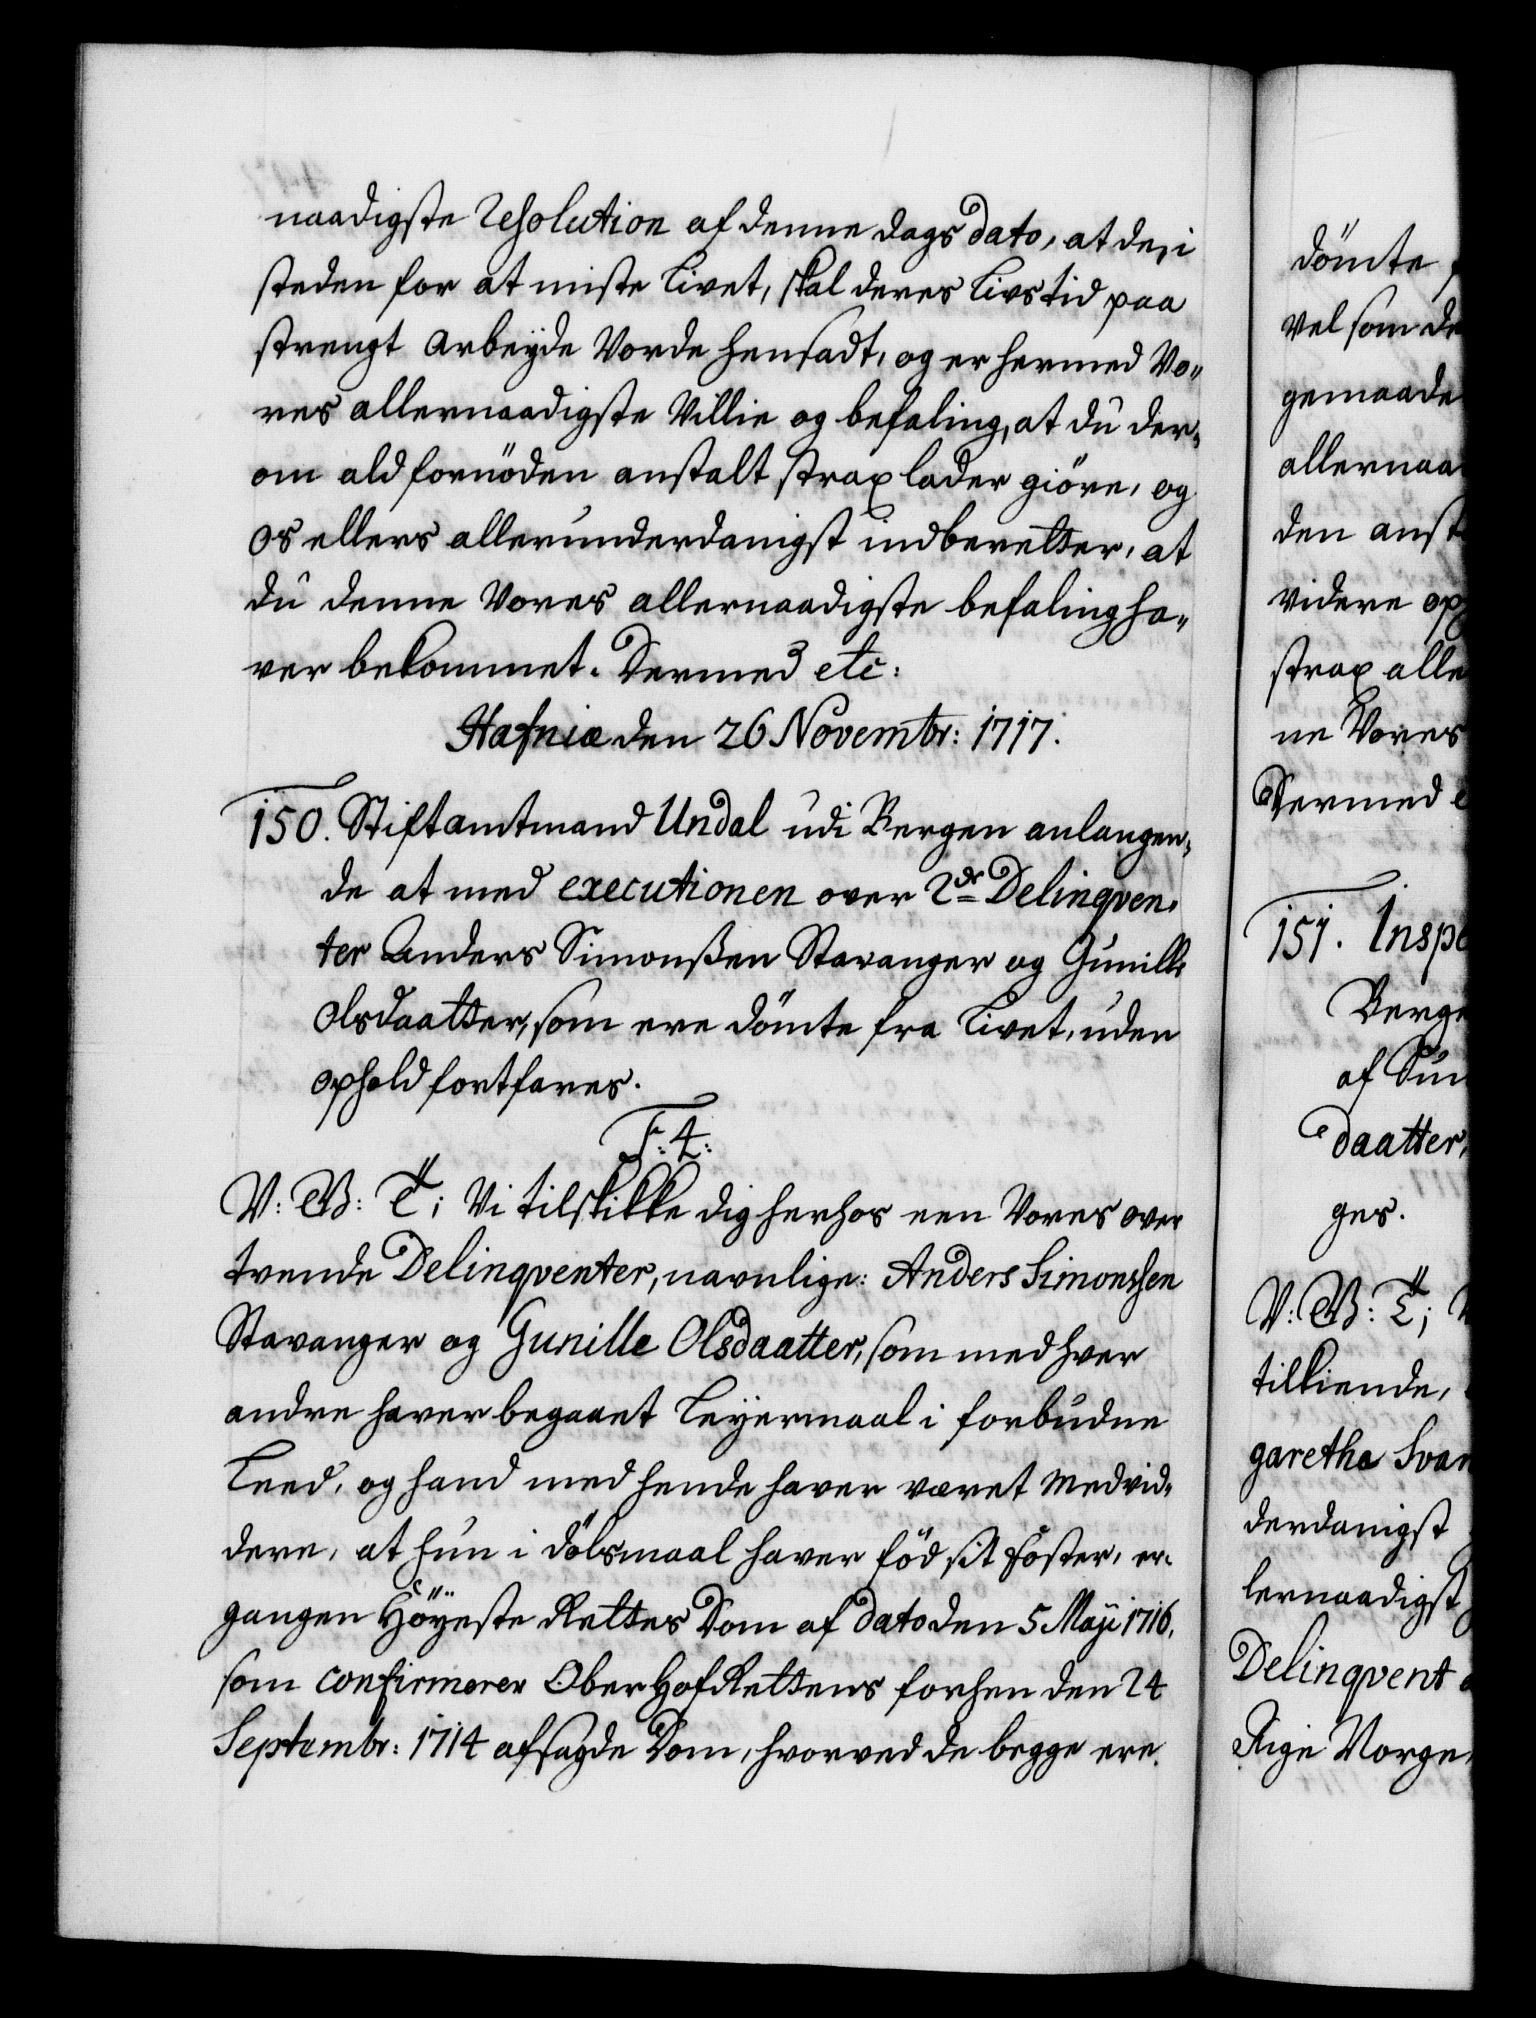 naadigste Resolution af denne dags dato, at de, i
steden for at miste Livet, skal deres Livs tid paa
strengt Arbeyde Vorde hensadt, og er hermed Vo„
res allernaadigste Villie og befaling, at du der„
om ald fornöden anstalt strax lader giöre, og
os ellers allerunderdanigst indberetter, at
du denne Vores allernaadigste befaling ha„
ver bekommet. Dermed etc:
Hafniæ den 26 Novembr: 1717.
150. Stiftamtmand Undal udi Bergen anlangen„
de at med executionen over 2de Delinqven„
ter Anders Simonßen Stavanger og Gunille
Olsdaatter, som ere dömte fra Livet, uden
ophold fortfares.
F: 4:
V: G: T; Vi tilskikke dig herhos een Vores over
tvende Delinqventer, navnlige: Anders Simonssen
Stavanger og Gunille Olsdaatter, som med hver
andre haver begaaet Leyermaal i forbudne
Leed, og hand med hende haver været medvid„
dere, at hun i dölsmaal haver föd sit Foster, er„
gangen Höyeste Rettes Dom af dato den 5 Maji 1716,
som confirmerer Ober Hof Rettens forhen den 24
Septembr: 1714 afsagde Dom, hvorved de begge ere
dömte
vel som de
gemaade
allernaa
den anst
videre op
strax alle
ne Vores
Dermed e
151. Inspe
Berge
af Sun
daatter,
ges.
V: G: T; V
tilkiende,
garetha Svan
derdanigst
lernaadigst
Delinqvent
Rige Norge,